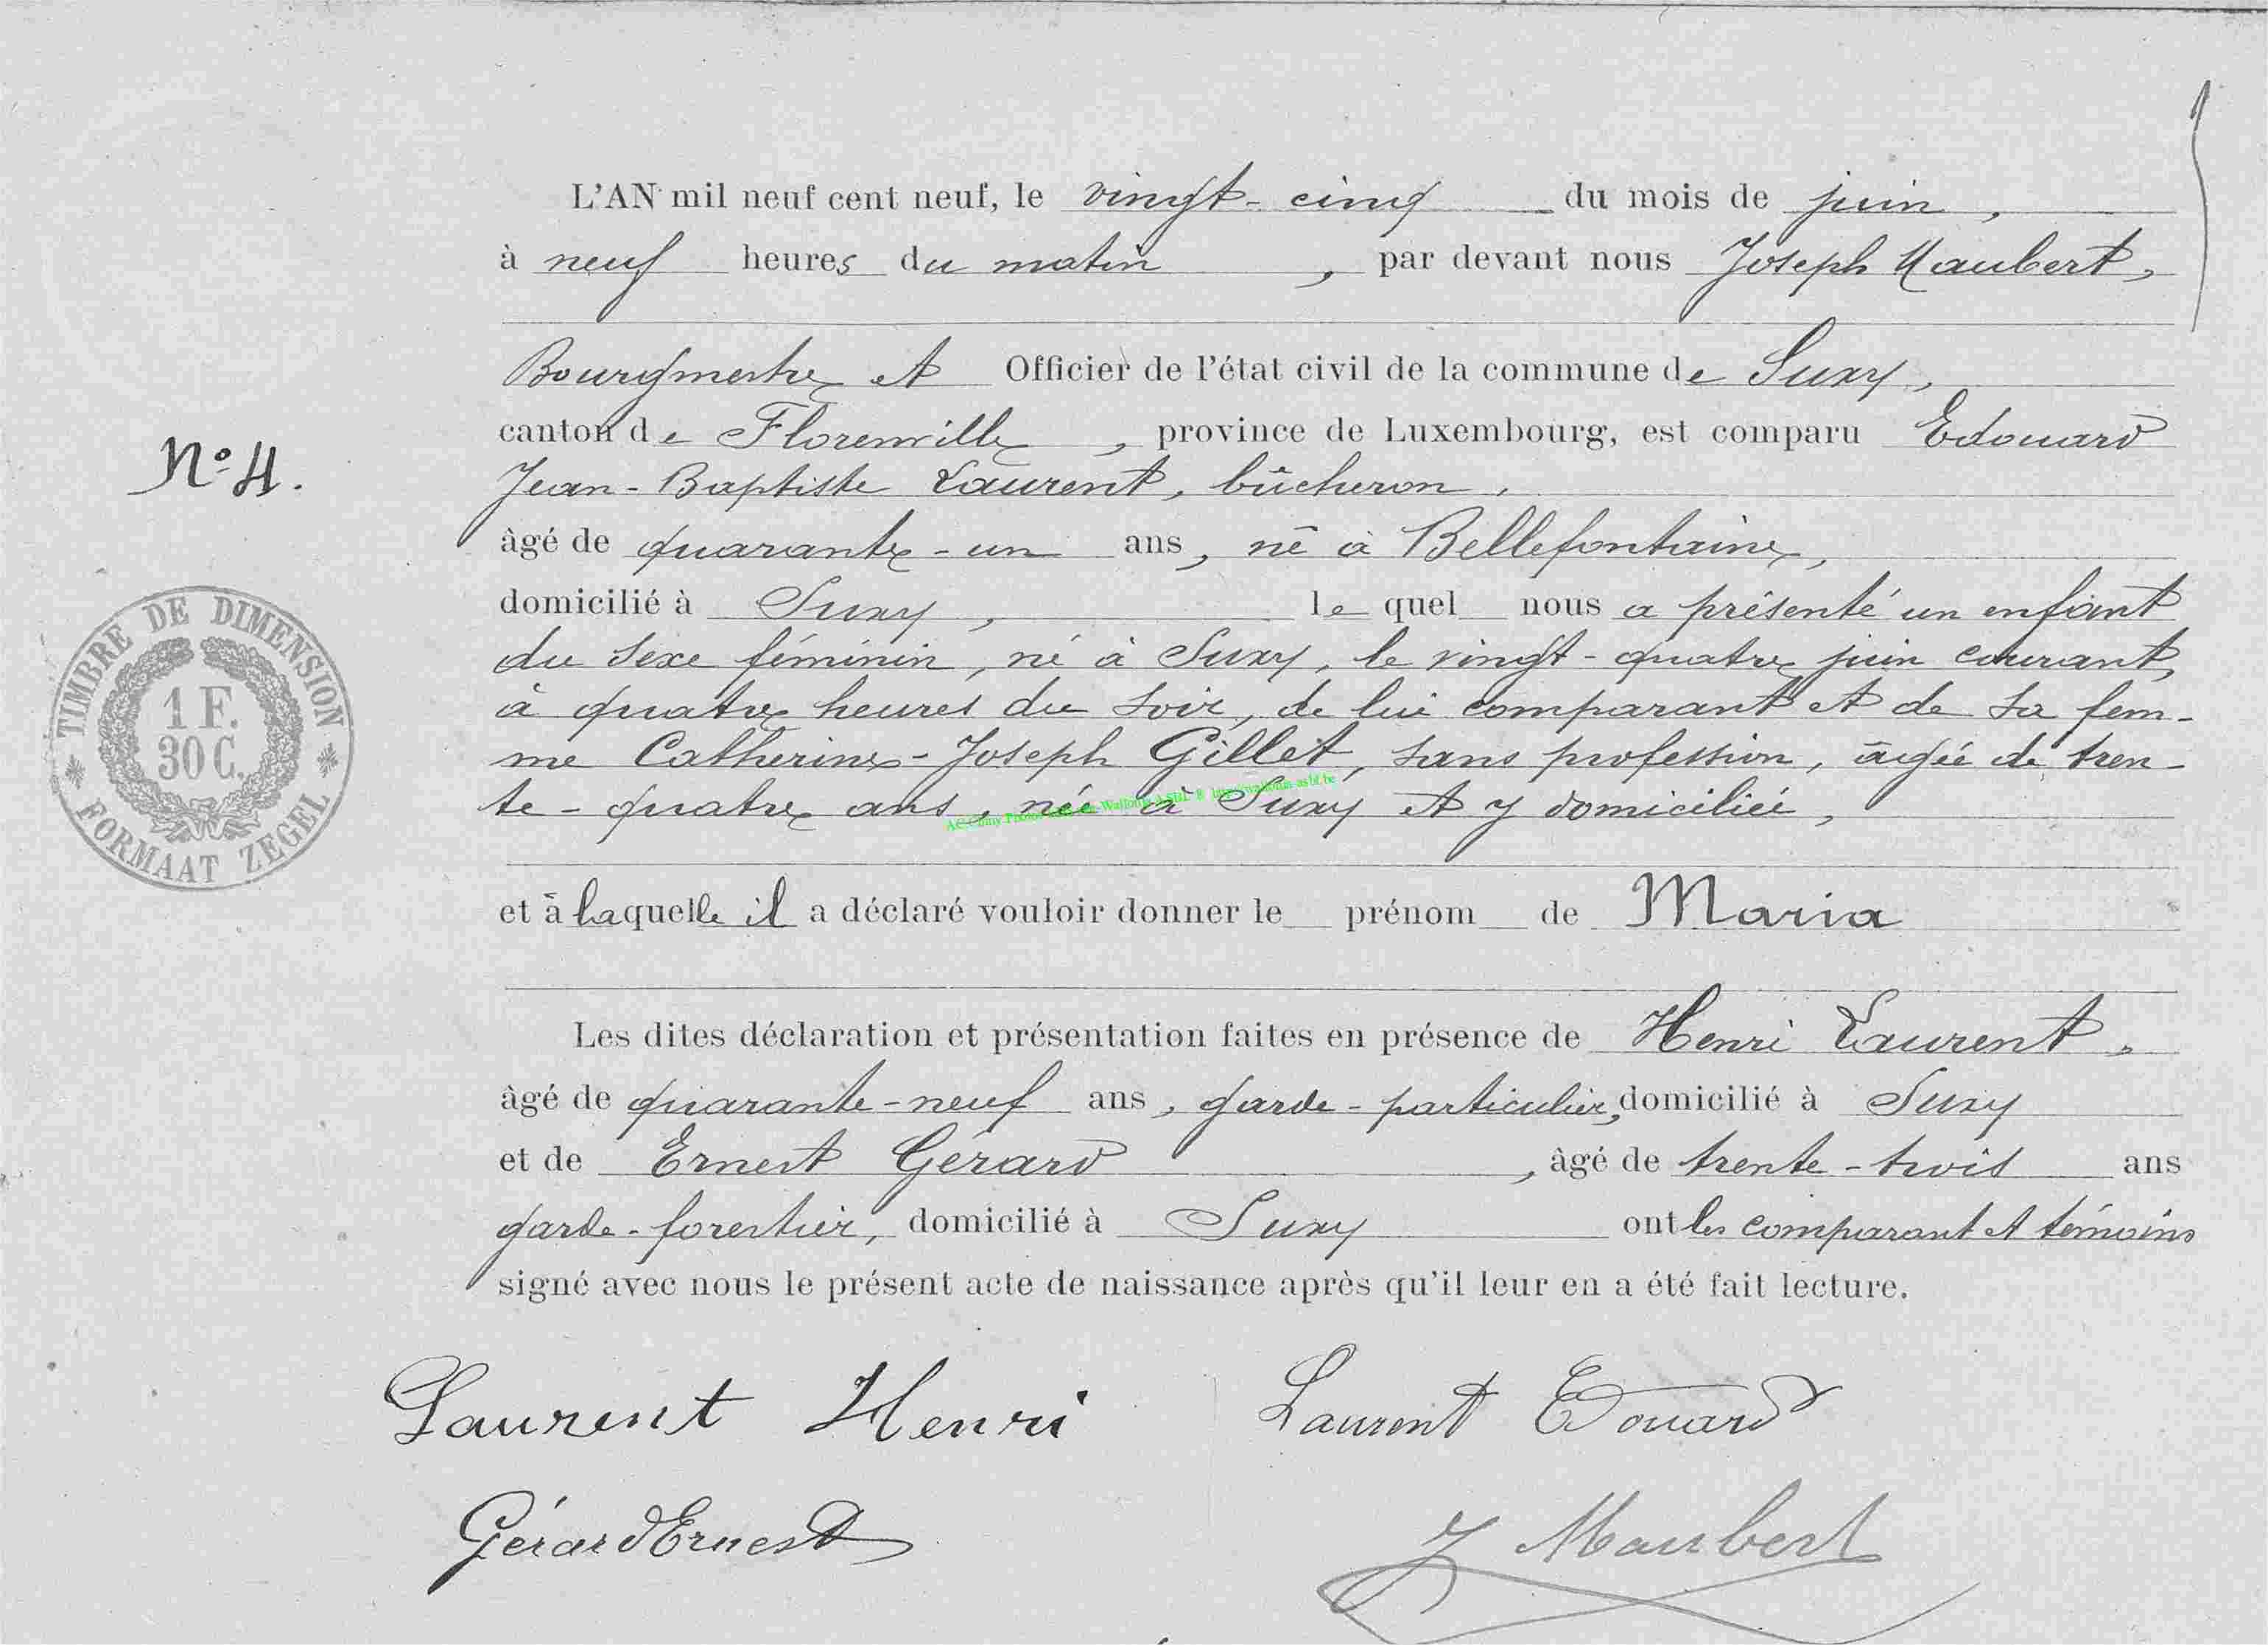 L'AN mil neuf cent neuf, le vingt-cinq du mois de juin,
à neuf heures du matin, par devant nous Joseph Maubert,
Bourgmestre et Officier de l'état civil de la commune de Suxy,
canton de Florenville, province de Luxembourg, est comparu Edouard
Jean-Baptiste Laurent, bûcheron,
âgé de quarante-un ans, né à Bellefontaine,
domicilié à Suxy, lequel nous a présenté un enfant
du sexe féminin, né à Suxy, le vingt-quatre juin courant,
à quatre heures du soir, de lui comparant et de sa fem-
me Catherine-Joseph Gillet, sans profession, âgée de tren-
te-quatre ans, née à Suxy et y domiciliée,
et à laquelle il a déclaré vouloir donner le prénom de Maria
Les dites déclaration et présentation faites en présence de Henri Laurent,
âgé de quarante-neuf ans, garde-particulier, domicilié à Suxy
et de Ernest Gérard, âgé de trente-trois ans
garde-forestier, domicilié à Suxy ont les comparant et témoins
signé avec nous le présent acte de naissance après qu'il leur en a été fait lecture.
Laurent Henri Laurent Edouard
Gérard Ernest J Maubert
N° 4.
TIMBRE DE DIMENSION
1 F.
30 C.
FORMAAT ZEGEL